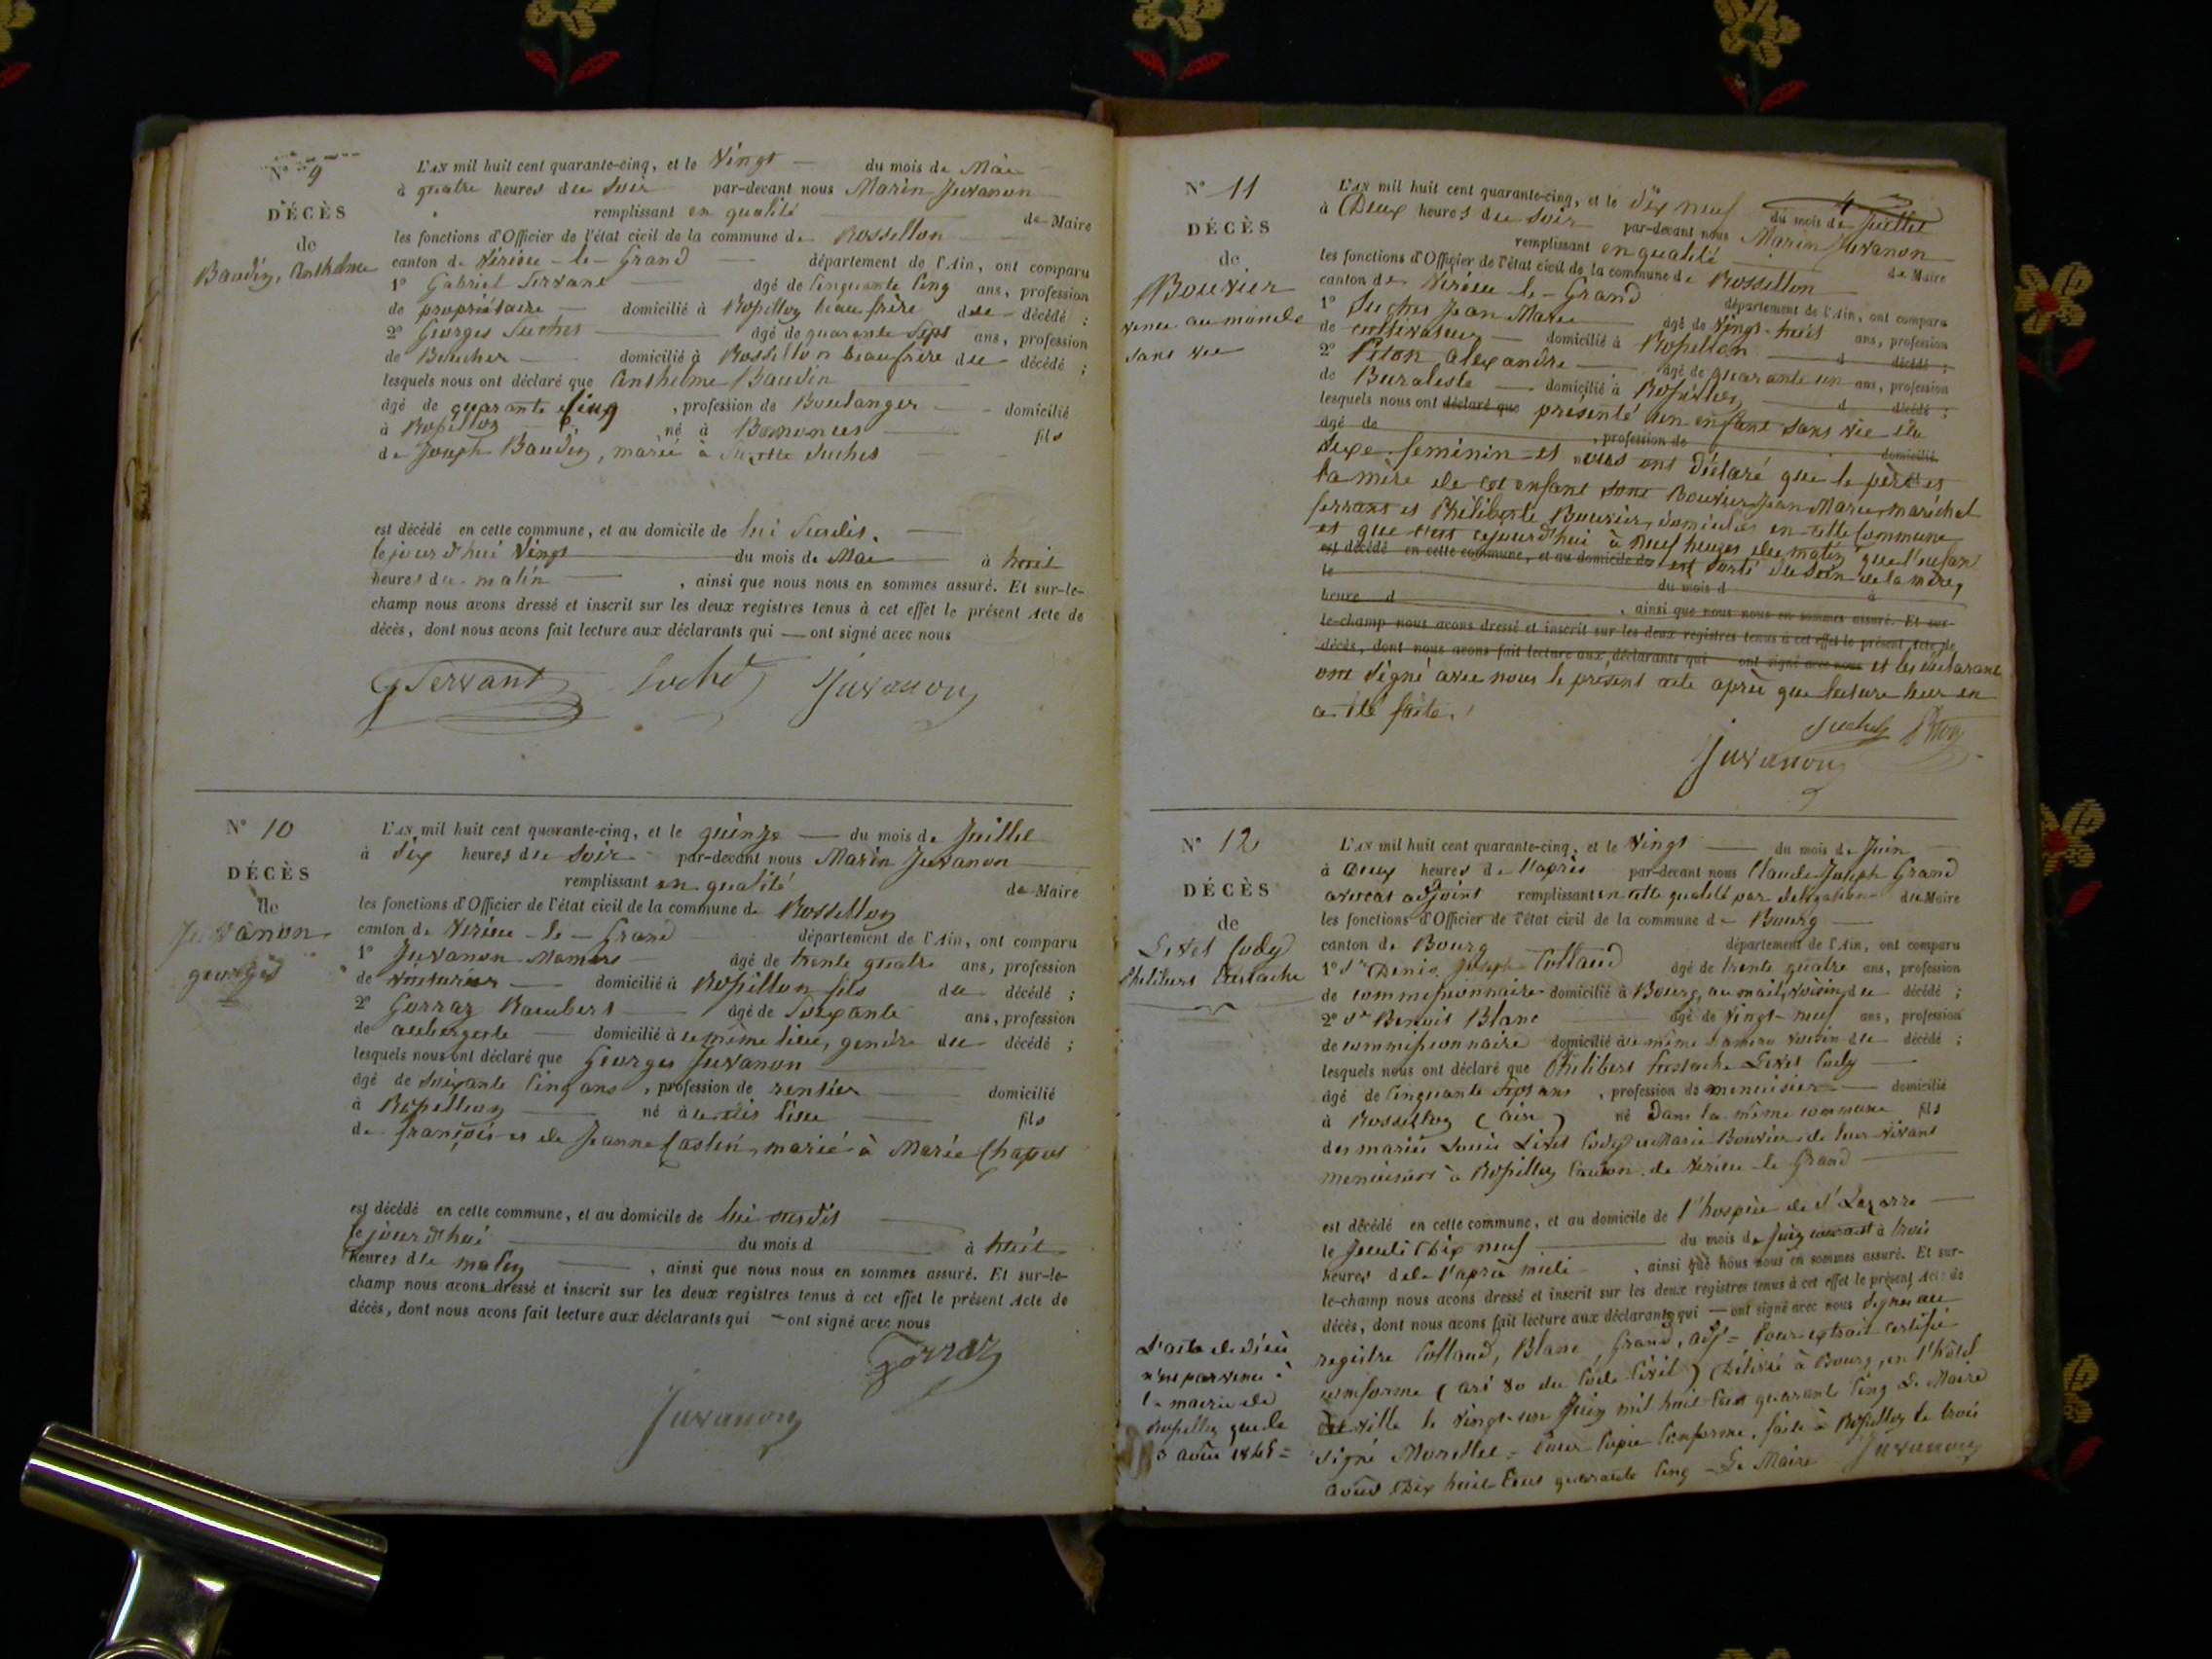 N° 9
DÉCÈS
de
Baudin, Anthelme
L'AN mil huit cent quarante-cinq, et le Vingt du mois de Mai
à quatre heures du soir par-devant nous Marin Juvanon
remplissant en qualité de Maire
les fonctions d'Officier de l'état civil de la commune de Rossillon
canton de Virieu-le-Grand département de l'Ain, ont comparu
1° Gabriel Servant âgé de Cinquante Cinq ans, profession
de propriétaire domicilié à Rossillon beau frère du décédé ;
2° Georges Suchet âgé de quarante Sept ans, profession
de Boucher domicilié à Rossillon beaufrère du décédé ;
lesquels nous ont déclaré que Anthelme Baudin
âgé de quarante Cinq , profession de Boulanger domicilié
à Rossillon né à fils
de Joseph Baudin, marié à Suchet
est décédé en cette commune, et au domicile de lui Susdit.
Cejourd'hui Vingt du mois de Mai à huit
heures du matin , ainsi que nous nous en sommes assuré. Et sur-le-
champ nous avons dressé et inscrit sur les deux registres tenus à cet effet le présent Acte de
décès, dont nous avons fait lecture aux déclarants qui — ont signé avec nous
G Servant Suchet Juvanon
N° 10
DÉCÈS
de
Juvanon
georges
L'AN mil huit cent quarante-cinq, et le quinze du mois de Juillet
à Six heures du Soir par-devant nous Marin Juvanon
remplissant en qualité de Maire
les fonctions d'Officier de l'état civil de la commune de Rossillon
canton de Virieu-le-Grand département de l'Ain, ont comparu
1° Juvanon Mamers âgé de trente quatre ans, profession
de voiturier domicilié à Rossillon fils du décédé ;
2° Gorraz Rambert âgé de Soixante ans, profession
de aubergiste domicilié à le même lieu, gendre du décédé ;
lesquels nous ont déclaré que Georges Juvanon
âgé de Soixante Cinq ans , profession de rentier domicilié
à Rossillon né à audit lieu fils
de françois et de Jeanne Castin, marié à Marie Chapot
est décédé en cette commune, et au domicile de lui susdit
Cejourd'hui du mois d à huit
heures du matin , ainsi que nous nous en sommes assuré. Et sur-le-
champ nous avons dressé et inscrit sur les deux registres tenus à cet effet le présent Acte de
décès, dont nous avons fait lecture aux déclarants qui — ont signé avec nous
Gorraz
Juvanon
4
N° 11
DÉCÈS
de
Bouvier
venu au monde
sans vie
L'AN mil huit cent quarante-cinq, et le dix neuf du mois de Juillet
à Deux heures du soir par-devant nous Marin Juvanon
remplissant en qualité de Maire
les fonctions d'Officier de l'état civil de la commune de Rossillon
canton de Virieu-le-Grand département de l'Ain, ont comparu
1° Suchet Jean Marie âgé de Vingt-huit ans, profession
de cultivateur domicilié à Rossillon d décédé ;
2° Piton alexandre âgé de quarante un ans, profession
de Buraliste domicilié à Rossillon d décédé ;
lesquels nous ont déclaré que présenté un enfant sans vie du
âgé de , profession de domicilié
sexe feminin et nous ont déclaré que le père et
la mère de cet enfant sont Bouvier Jean Marie, maréchal
ferrant et Philiberte Bouvier, domiciliés en cette Commune
et que c'est cejourd'hui à Neuf heures du matin que l'enfant
est décédé en cette commune, et au domicile de est sorti du sein de la mère,
le du mois d à
heure d , ainsi que nous nous en sommes assuré. Et sur-
le-champ nous avons dressé et inscrit sur les deux registres tenus à cet effet le présent Acte de
décès, dont nous avons fait lecture aux déclarants qui ont signé avec nous et les déclarans
ont Signé avec nous le présent acte après que lecture leur en
a été faite.
Suchet Piton
Juvanon
N° 12
DÉCÈS
de
Livet Cody
Philibert Eustache
L'AN mil huit cent quarante-cinq, et le Vingt du mois de Juin
à deux heures de l'après par-devant nous Claude Joseph Grand
avocat adjoint remplissant en cette qualité par délégation du Maire
les fonctions d'Officier de l'état civil de la commune de Bourg
canton de Bourg département de l'Ain, ont comparu
1° Sr Denis Joseph Collaud âgé de trente quatre ans, profession
de commissionnaire domicilié à Bourg, au mail, voisin du décédé ;
2° Sr Benoit Blanc âgé de Vingt-neuf ans, profession
de commissionnaire domicilié au même voisin du décédé ;
lesquels nous ont déclaré que Philibert Eustache Livet Cody
âgé de Cinquante Sept ans , profession de menuisier domicilié
à Rossillon (ain) né Dans la même commune fils
des mariés Louis Livet Cody et Marie Bouvier de leur vivant
menuisier à Rossillon Canton de Virieu-le-Grand
est décédé en cette commune, et au domicile de l'hospice de St Lazarre
le Jeudi Dix neuf du mois de Juin courant à trois
heures de l'après midi , ainsi que nous nous en sommes assuré. Et sur-
le-champ nous avons dressé et inscrit sur les deux registres tenus à cet effet le présent Acte de
décès, dont nous avons fait lecture aux déclarants qui — ont signé avec nous Signés au
registre Collaud, Blanc, Grand, adj = Pour extrait certifié
conforme (art 80 du Code Civil) Délivré à Bourg, en l'hôtel
de ville le Vingt-un Juin mil huit Cent quarante Cinq Le Maire
signé = Pour Copie Conforme, faite à Rossillon le trois
août Dix huit Cent quarante Cinq Le Maire Juvanon
L'acte de décès
n'est parvenu à
la mairie de
Rossillon que le
3 août 1845 =